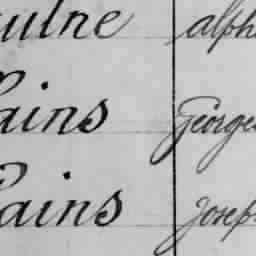 ulne alph
ains George
ains Josep